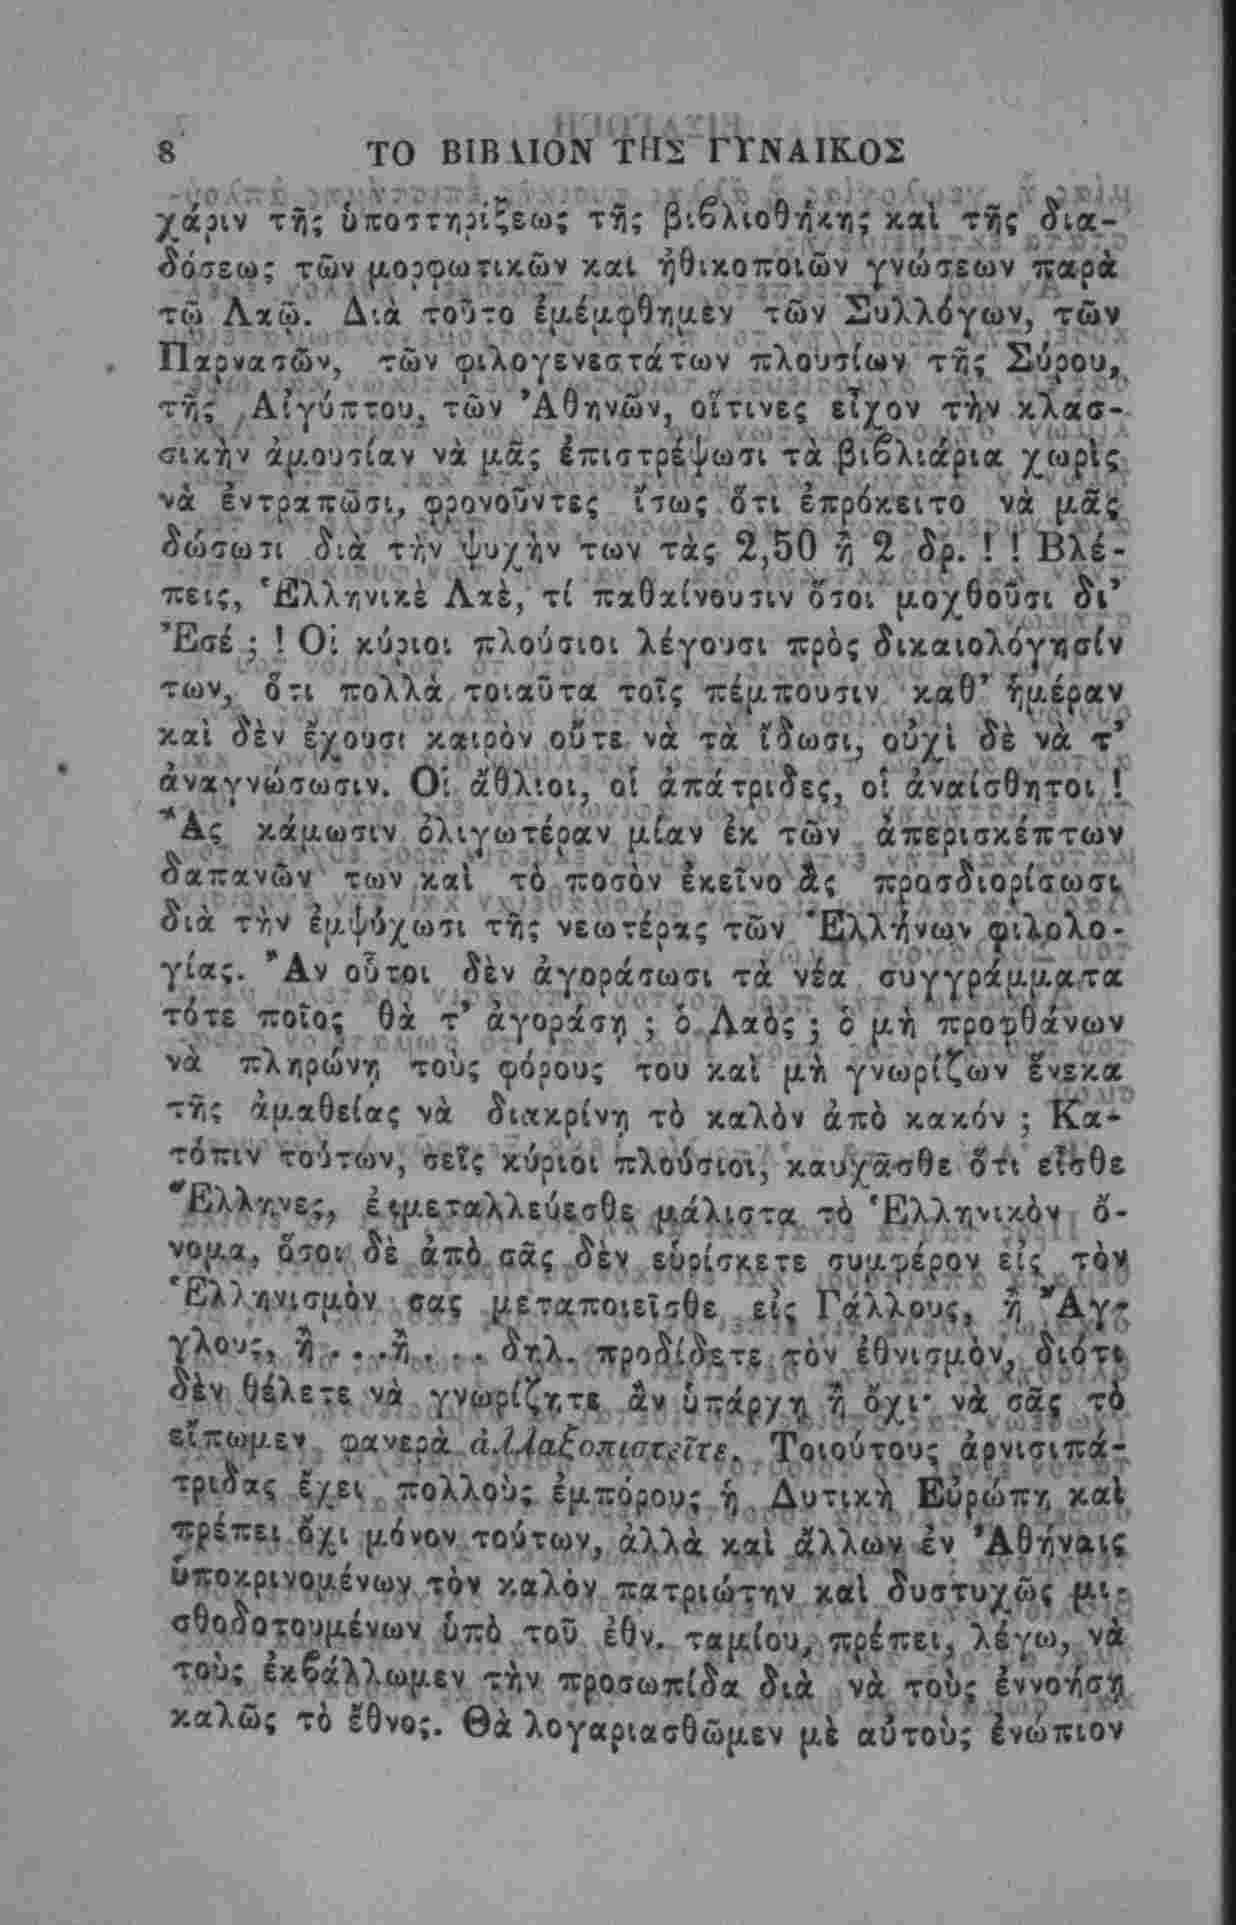 8 ΤΟ ΒΙΒΛΙΟΝ ΤΗΣ ΓΥΝΑΙΚΟΣ
χάριν τῆς ὑποστηρίξεως τῆς βιβλιοθήκης καὶ τῆς δια-
δόσεως τῶν μορφωτικῶν καὶ ἠθικοποιῶν γνώσεων παρὰ
τῷ Λαῷ. Διὰ τοῦτο ἐμέμφθημεν τῶν Συλλόγων, τῶν
Παρνασῶν, τῶν φιλογενεστάτων πλουσίων τῆς Σύρου,
τῆς Αἰγύπτου, τῶν Ἀθηνῶν, οἵτινες εἶχον τὴν κλασ-
σικὴν ἀμουσίαν νὰ μᾶς ἐπιστρέψωσι τὰ βιβλιάρια χωρὶς
νὰ ἐντραπῶσι, φρονοῦντες ἴσως ὅτι ἐπρόκειτο νὰ μᾶς
δώσωσι διὰ τὴν ψυχὴν των τὰς 2,50 ἢ 2 δρ. ! ! Βλέ-
πεις, Ἑλληνικὲ Λαὲ, τί παθαίνουσιν ὅσοι μοχθοῦσι δι’
Ἐσέ ; ! Οἱ κύριοι πλούσιοι λέγουσι πρὸς δικαιολόγησίν
των, ὅτι πολλὰ τοιαῦτα τοῖς πέμπουσιν καθ’ ἡμέραν
καὶ δὲν ἔχουσι καιρὸν οὔτε νὰ τὰ ἴδωσι, οὐχὶ δὲ νὰ τ’
ἀναγνώσωσιν. Οἱ ἄθλιοι, οἱ ἀπάτριδες, οἱ ἀναίσθητοι !
Ἂς κάμωσιν ὀλιγωτέραν μίαν ἐκ τῶν ἀπερισκέπτων
δαπανῶν των καὶ τὸ ποσὸν ἐκεῖνο ἂς προσδιορίσωσι
διὰ τὴν ἐμψύχωσι τῆς νεωτέρας τῶν Ἑλλήνων φιλολο-
γίας. Ἂν οὗτοι δὲν ἀγοράσωσι τὰ νέα συγγράμματα
τότε ποῖος θὰ τ’ ἀγοράσῃ ; ὁ Λαὸς ; ὁ μὴ προφθάνων
νὰ πληρώνῃ τοὺς φόρους του καὶ μὴ γνωρίζων ἕνεκα
τῆς ἀμαθείας νὰ διακρίνῃ τὸ καλὸν ἀπὸ κακόν ; Κα-
τόπιν τούτων, σεῖς κύριοι πλούσιοι, καυχᾶσθε ὅτι εἶσθε
Ἕλληνες, ἐκμεταλλεύεσθε μάλιστα τὸ Ἑλληνικὸν ὄ-
νομα, ὅσοι δὲ ἀπὸ σᾶς δὲν εὑρίσκετε συμφέρον εἰς τὸν
Ἑλληνισμὸν σας μεταποιεῖσθε εἰς Γάλλους, ἢ Ἄγ-
γλους, ἢ . . . ἢ . . . δηλ. προδίδετε τὸν ἐθνισμὸν, διότι
δὲν θέλετε νὰ γνωρίζητε ἂν ὑπάρχῃ ἢ ὄχι· νὰ σᾶς τὸ
εἴπωμεν φανερὰ ἀλλαξοπιστεῖτε. Τοιούτους ἀρνισιπά-
τριδας ἔχει πολλοὺς ἐμπόρους ἡ Δυτικὴ Εὐρώπη καὶ
πρέπει ὄχι μόνον τούτων, ἀλλὰ καὶ ἄλλων ἐν Ἀθήναις
ὑποκρινομένων τὸν καλὸν πατριώτην καὶ δυστυχῶς μι-
σθοδοτουμένων ὑπὸ τοῦ ἐθν. ταμίου, πρέπει, λέγω, νὰ
τοὺς ἐκβάλλωμεν τὴν προσωπίδα διὰ νὰ τοὺς ἐννοήσῃ
καλῶς τὸ ἔθνος. Θὰ λογαριασθῶμεν μὲ αὐτοὺς ἐνώπιον